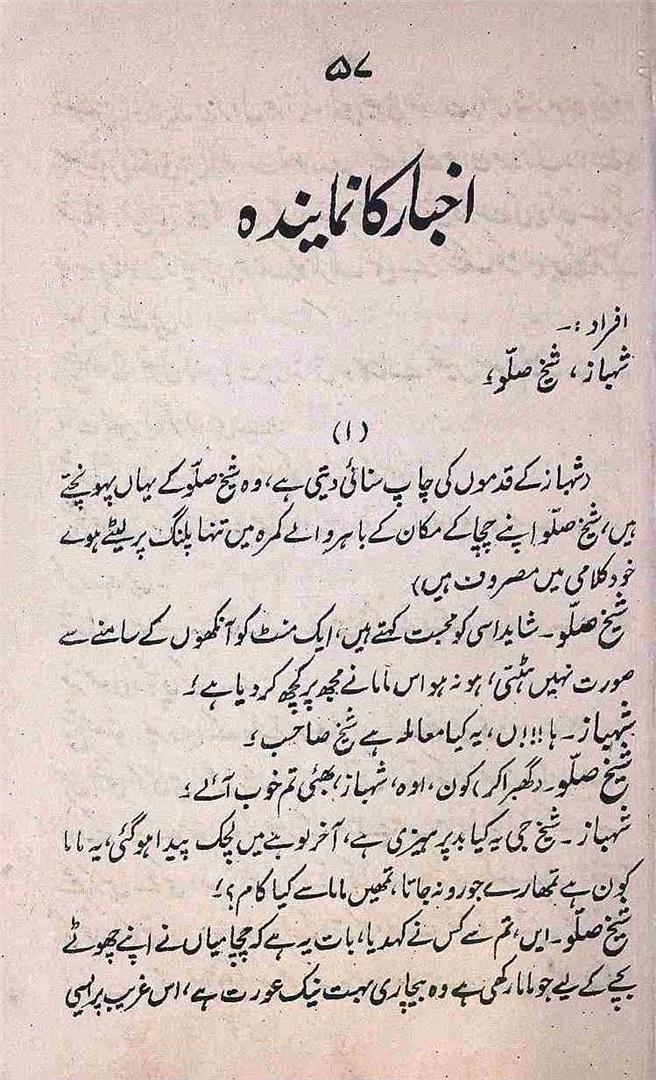 ۵۷
اخبار کا نمایندہ
افراد :۔
شہباز، شیخ صلّو؛
(۱)
(شہباز کے قدموں کی چاپ سنائی دیتی ہے، وہ شیخ صلّو کے یہاں پہونچتے
ہیں، شیخ صلّو اپنے چچا کے مکان کے باہر والے کمرہ میں تنہا پلنگ پر لیٹے ہوے
خود کلامی میں مصروف ہیں)
شیخ صلّو۔ شاید اسی کو محبت کہتے ہیں، ایک منٹ کو آنکھوں کے سامنے سے
صورت نہیں ہٹتی، ہو نہ ہو اس ماما نے مجھ پر کچھ کر دیا ہے!
شہباز۔ ہا!!!ں، یہ کیا معاملہ ہے شیخ صاحب؛
شیخ صلّو۔ (گھبرا کر) کون، اوہ، شہباز، بھئی تم خوب آئے؛
شہباز۔ شیخ جی یہ کیا بد پرہیزی ہے، آخر لوہے میں لچک پیدا ہو گئی، یہ ماما
کون ہے تمھارے جورو نہ جاتا، تمھیں ماما سے کیا کام؟!
شیخ صلّو۔ ایں، تم سے کس نے کہدیا، بات یہ ہے کہ چچا میاں نے اپنے چھوٹے
بچے کے لیے جو ماما رکھی ہے وہ بیچاری بہت نیک عورت ہے، اس غریب پر ایسی